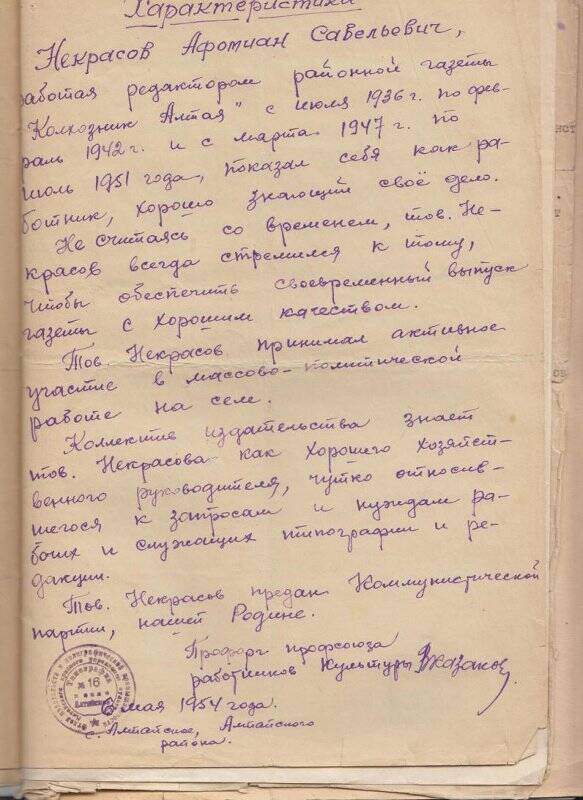 Характеристика
Некрасов Афотиан Савельевич,
работая редактором районной газеты
"Колхозник Алтая" с июля 1936 г. по фев-
раль 1942 г. и с марта 1947 г. по
июль 1951 года, показал себя как ра-
ботник, хорошо знающий своё дело.
Не считаясь со временем, тов. Не-
красов всегда стремился к тому,
чтобы обеспечить своевременный выпуск
газеты с хорошим качеством.
Тов. Некрасов принимал активное
участие в массово-политической
работе на селе.
Коллектив издательства знает
тов. Некрасова как хорошего хозяйст-
венного руководителя, чутко относив-
шегося к запросам и нуждам ра-
бочих и служащих типографии и ре-
дакции.
Тов. Некрасов предан Коммунистической
партии, нашей Родине.
Профорг профсоюза
работников Культуры Казаков
6 мая 1954 года.
с. Алтайское, Алтайского
района.
Типография
№ 16